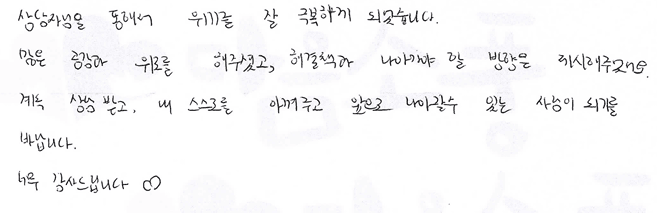 상담자님을 통해서 위기를 잘 극복하게 되었습니다.
많은 공감과 위로를 해주셨고, 해결책과 나아가야 할 방향을 제시해주셨어요.
계속 상승 받고, 내 스스로를 아껴주고 앞으로 나아갈수 있는 사람이 되기를
바랍니다.
너무 감사드립니다 ♡